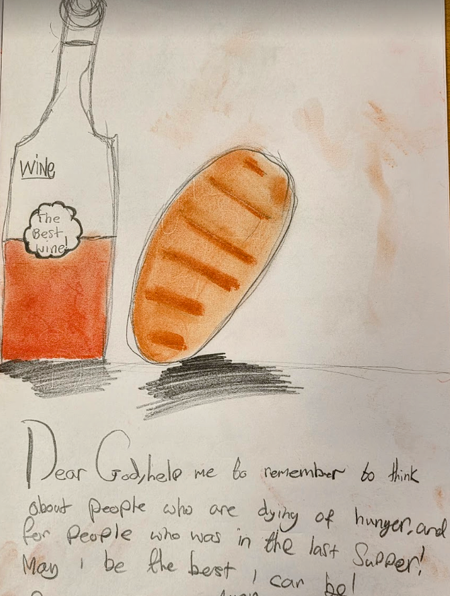 Wine
The
Best
wine!
Dear God, help me to remember to think
about people who are dying of hunger, and
for people who was in the last Supper!
May i be the best i can be!